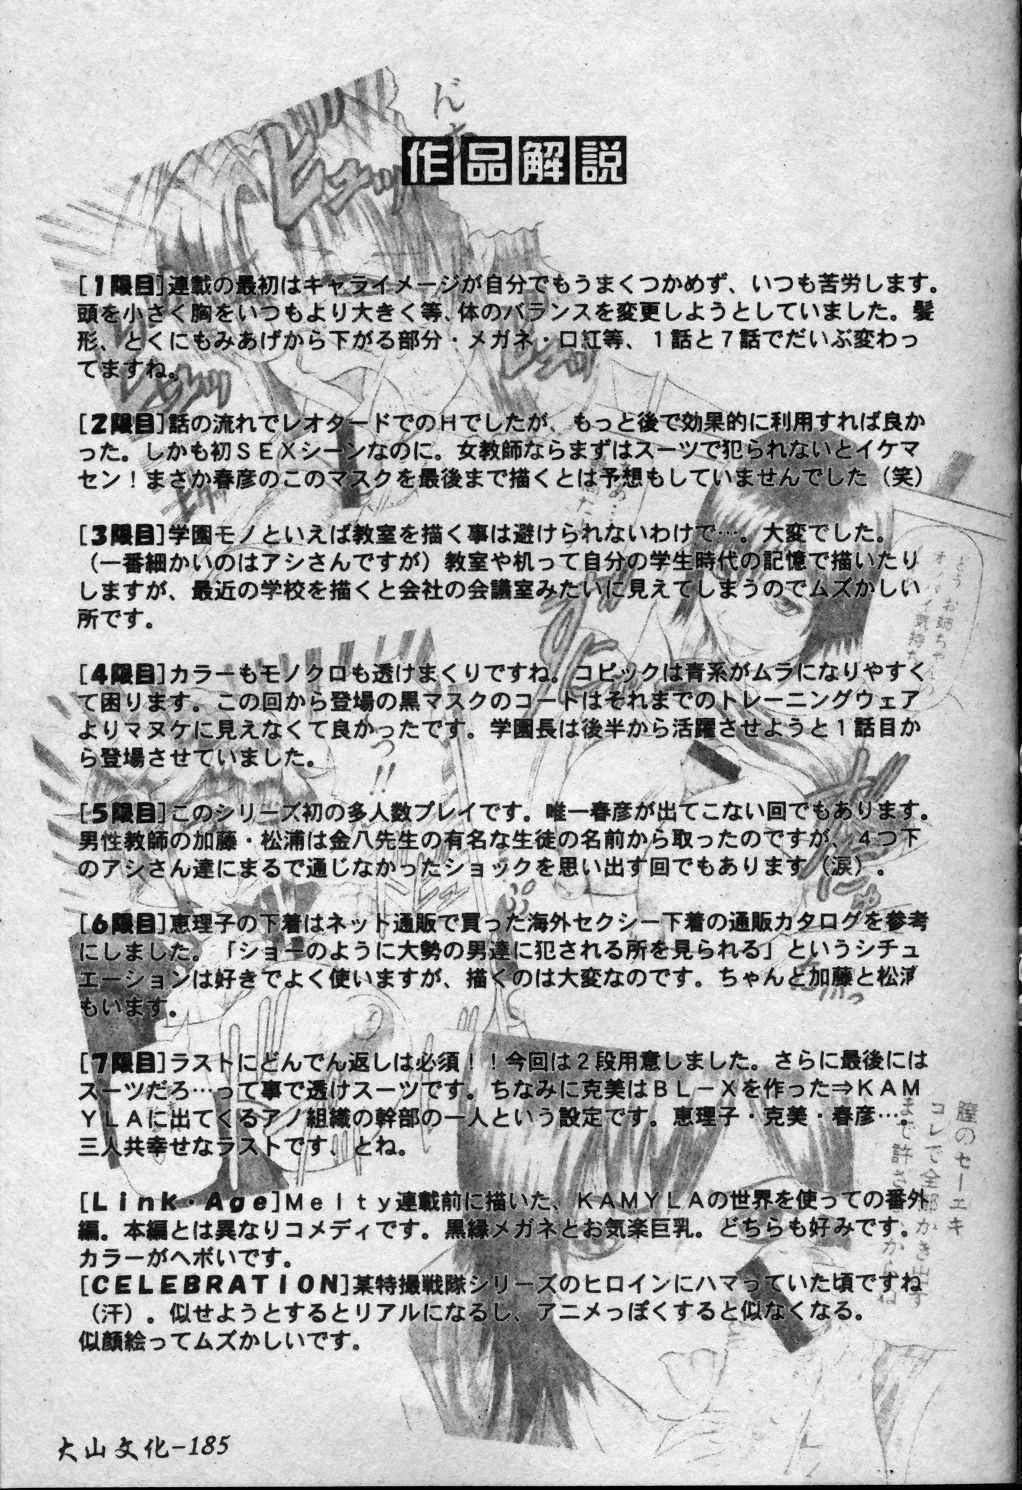 作品解説
[1限目]連載の最初はキャライメージが自分でもうまくつかめず、いつも苦労します。
頭を小さく胸をいつもより大きく等、体のバランスを変更しようとしていました。髪
形、とくにもみあげから下がる部分・メガネ・口紅等、1話と7話でだいぶ変わっ
てますね。
[2限目]話の流れでレオタードでのHでしたが、もっと後で効果的に利用すれば良か
った。しかも初SEXシーンなのに。女教師ならまずはスーツで犯られないとイケマ
セン!まさか春彦のこのマスクを最後まで描くとは予想もしていませんでした(笑)
[3限目]学園モノといえば教室を描く事は避けられないわけで…。大変でした。
(一番細かいのはアシさんですが)教室や机って自分の学生時代の記憶で描いたり
しますが、最近の学校を描くと会社の会議室みたいに見えてしまうのでムズかしい
所です。
[4限目]カラーもモノクロも透けまくりですね。コピックは青系がムラになりやすく
て困ります。この回から登場の黒マスクのコートはそれまでのトレーニングウェア
よりマヌケに見えなくて良かったです。学園長は後半から活躍させようと1話目か
ら登場させていました。
[5限目]このシリーズ初の多人数プレイです。唯一春彦が出てこない回でもあります。
男性教師の加藤・松浦は金八先生の有名な生徒の名前から取ったのですが、4つ下
のアシさん達にまるで通じなかったショックを思い出す回でもあります(涙)。
[6限目]恵理子の下着はネット通販で買った海外セクシー下着の通販カタログを参考
にしました。「ショーのように大勢の男達に犯される所を見られる」というシチュ
エーションは好きでよく使いますが、描くのは大変なのです。ちゃんと加藤と松浦
もいます。
[7限目]ラストにどんでん返しは必須!!今回は2段用意しました。さらに最後には
スーツだろ…って事で透けスーツです。ちなみに克美はBL-Xを作った⇒KAM
YLAに出てくるアノ組織の幹部の一人という設定です。恵理子・克美・春彦…。
三人共幸せなラストです、とね。
[Link・Age]Melty連載前に描いた、KAMYLAの世界を使っての番外
編。本編とは異なりコメディです。黒縁メガネとお気楽巨乳。どちらも好みです。
カラーがヘボいです。
[CELEBRATION]某特撮戦隊シリーズのヒロインにハマっていた頃ですね
(汗)。似せようとするとリアルになるし、アニメっぽくすると似なくなる。
似顔絵ってムズかしいです。
膣のセーエキ
コレで全部かき出す
大山文化-185